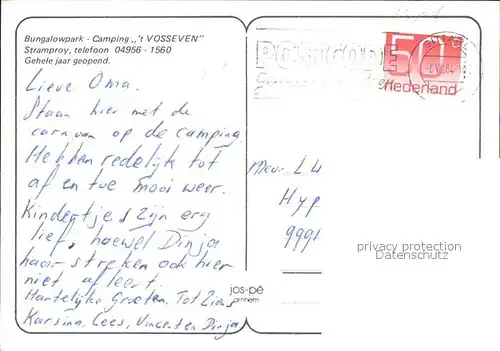 Bungalowpark - Camping „'t VOSSEVEN"
Stramproy, telefoon 04956 - 1560
Gehele jaar geopend.
POSTCODE
50
Nederland
Lieve Oma.
Staan hier met de
caravan op de camping.
Hebben redelijk tot
af en toe mooi weer.
Kindertjes zijn erg
lief, hoewel Dinja
haar streken ook hier
niet afleert.
Hartelijke Groeten. Tot Ziens
Karsina, Cees, Vincent en Dinja
Mevr. L. 4
Hyp
999
privacy protection
Datenschutz
jos-pé
arnhem